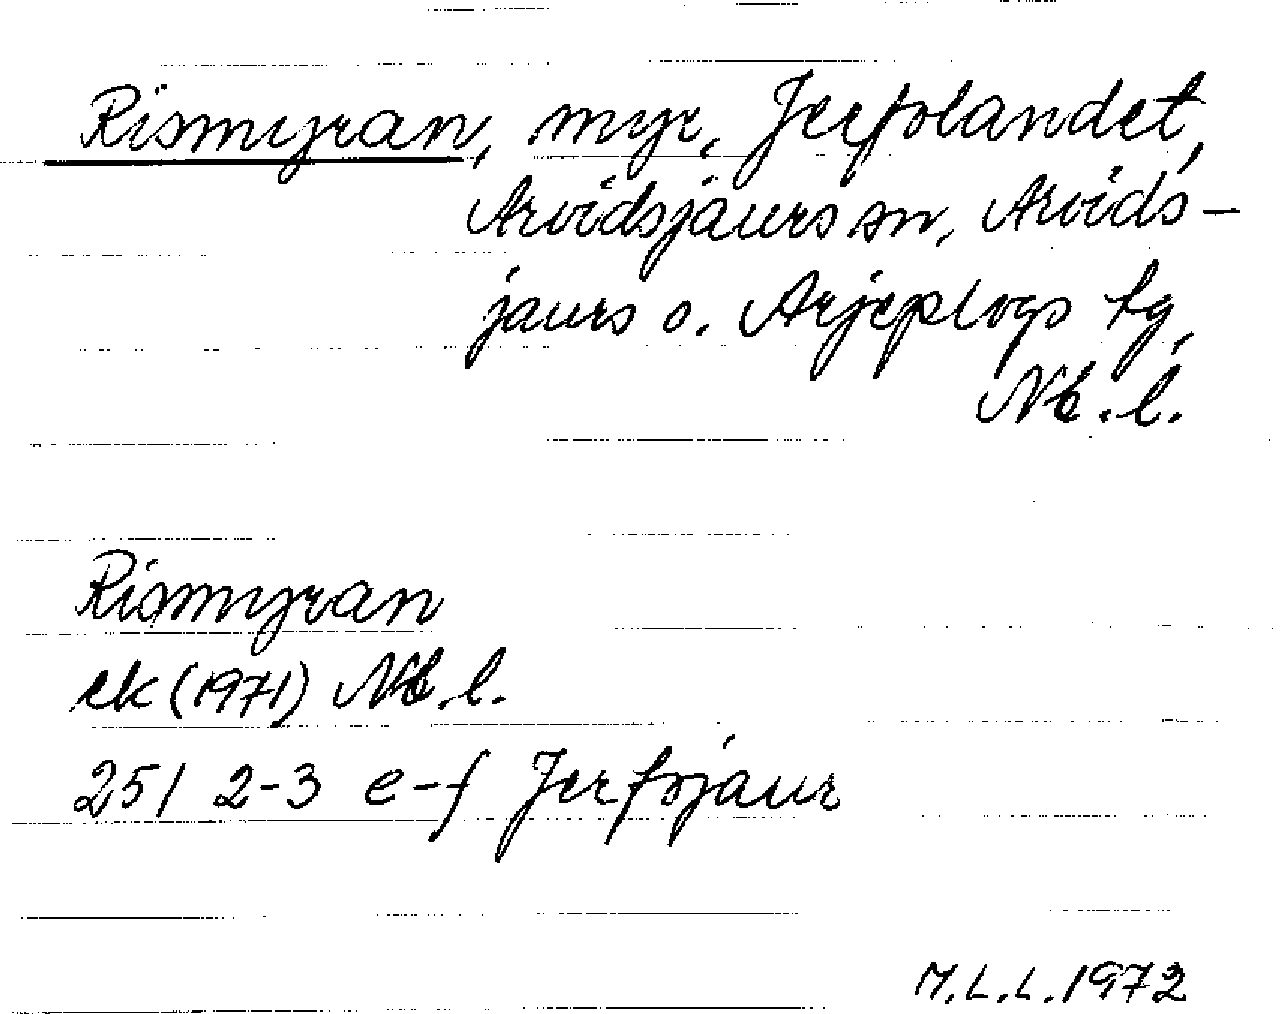 Rismyran, myr, Jerfolandet,
Arvidsjaurs sn, Arvids-
jaurs o. Arjeplogs tg,
Nb.l.
Rismyran
ek (1971) Nb.l.
25I 2-3 e-f Jerfojaur
M.L.L. 1972